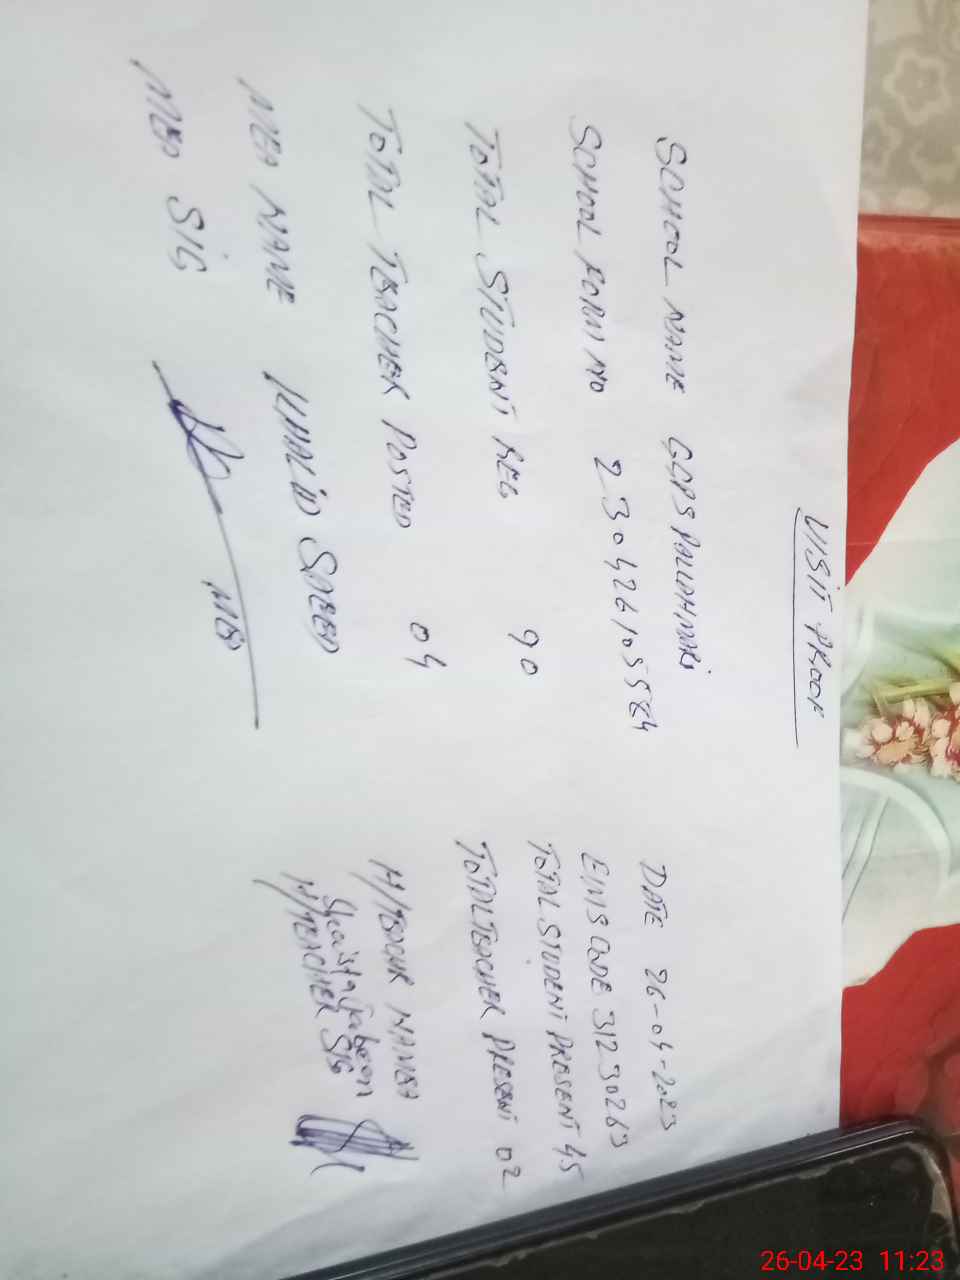 VISIT PROOF
SCHOOL NAME GGPS
DATE 26-04-2023
SCHOOL FORM NO 230426105584
EMIS CODE 31230263
TOTAL STUDENT REG 90
TOTAL STUDENT PRESENT 45
TOTAL TEACHER POSTED 04
TOTAL TEACHER PRESENT 02
MEA NAME KHALID SAEED
H/TEACHR NAME
Shaista Jabeen
MEA SIG
H/TEACHER SIG
26-04-23 11:23